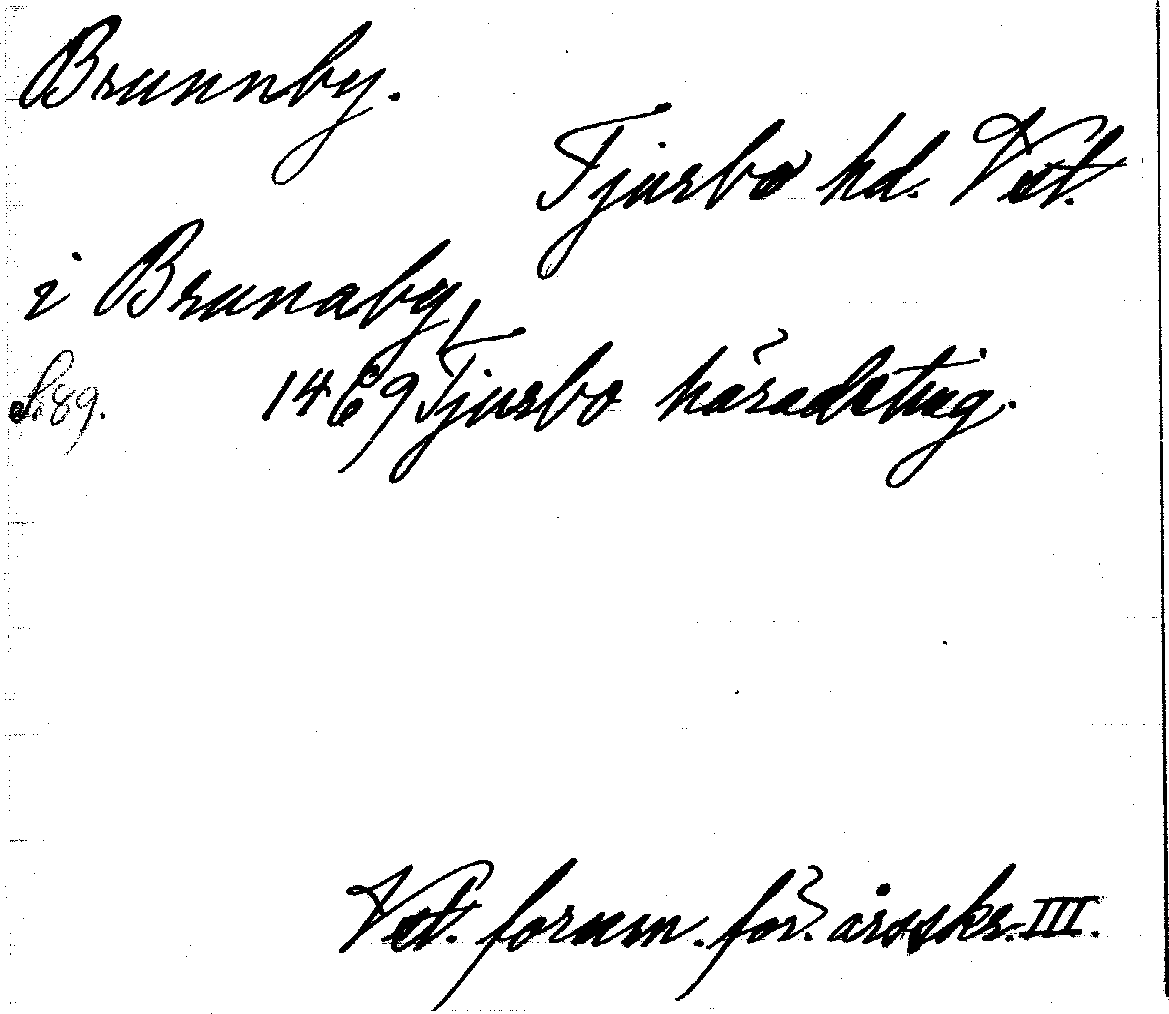 Brunnby.
Tjurbo hd. Vstl.
i Brunaby,
S. 89. 1469 Tjurbo häradsting.
Vstl. fornm. för. årsskr. III.